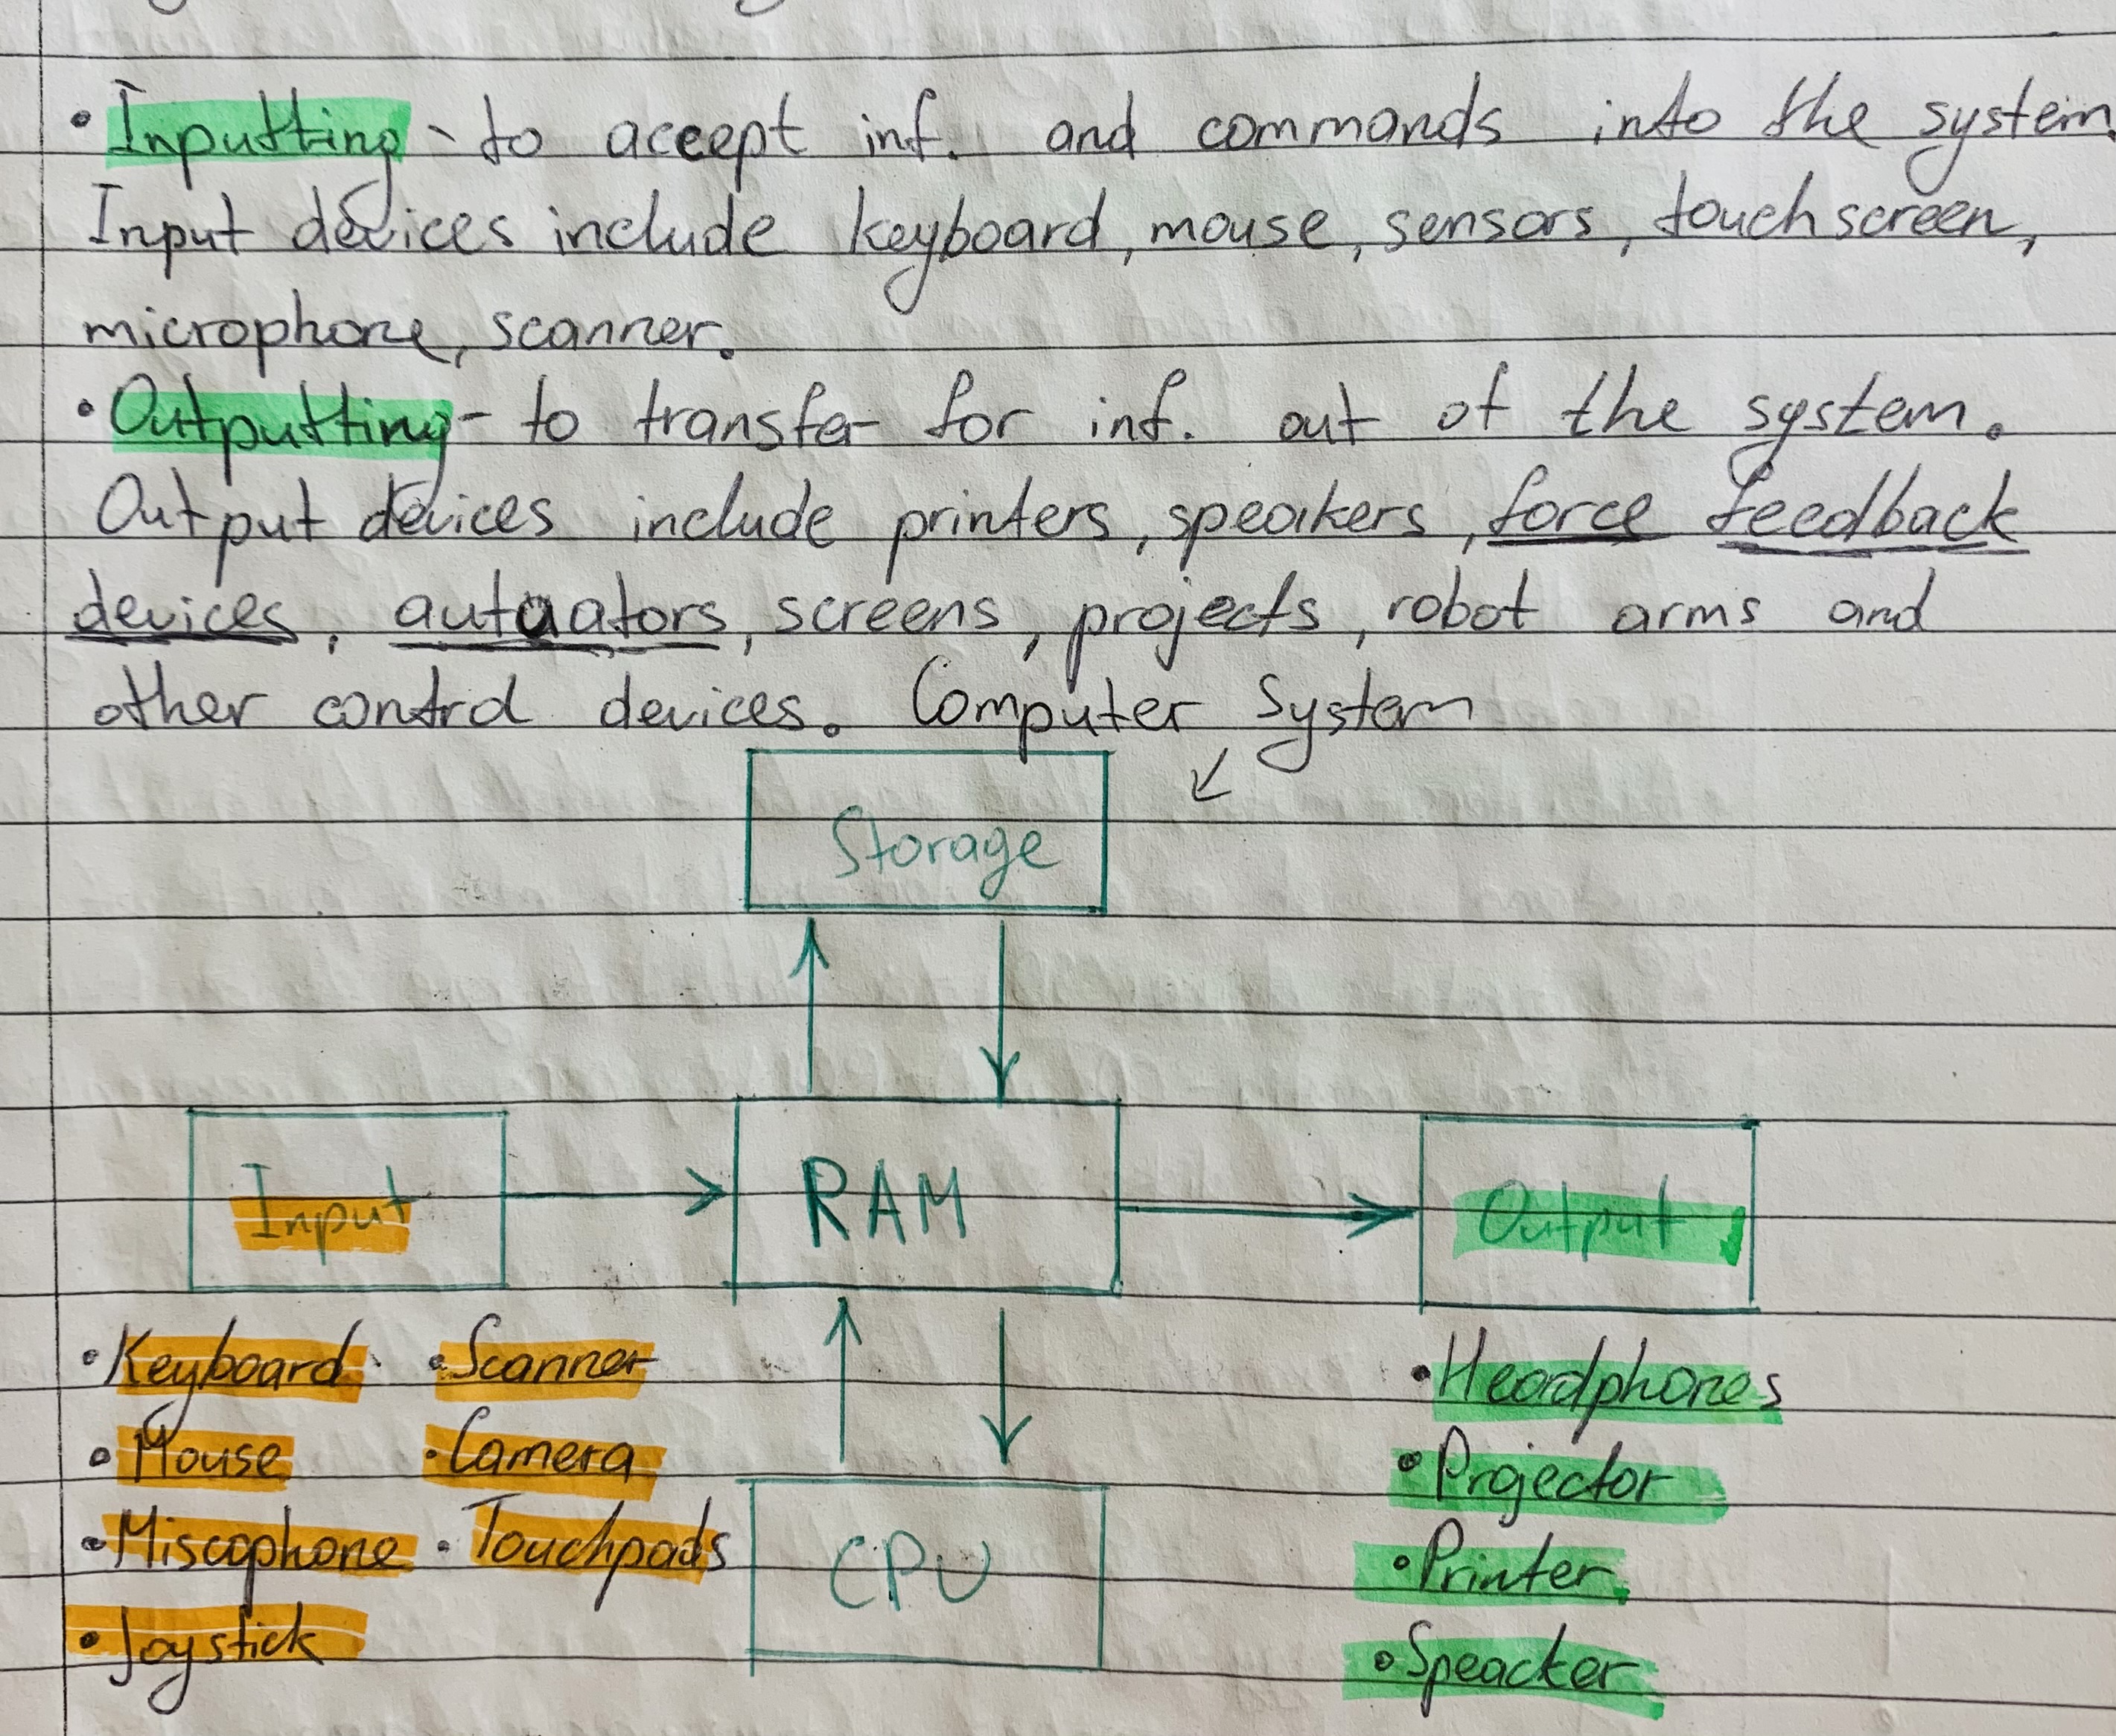 • Inputting - to accept inf. and commands into the system.
Input devices include keyboard, mouse, sensors, touchscreen,
microphone, scanner.
• Outputting - to transfer for inf. out of the system.
Output devices include printers, speakers, force feedback
devices, autuators, screens, projects, robot arms and
other control devices. Computer System
Storage
Input
RAM
Output
• Keyboard
• Scanner
• Mouse
• Camera
• Miscophone
• Touchpads
• Joystick
CPU
• Headphones
• Projector
• Printer
• Speacker